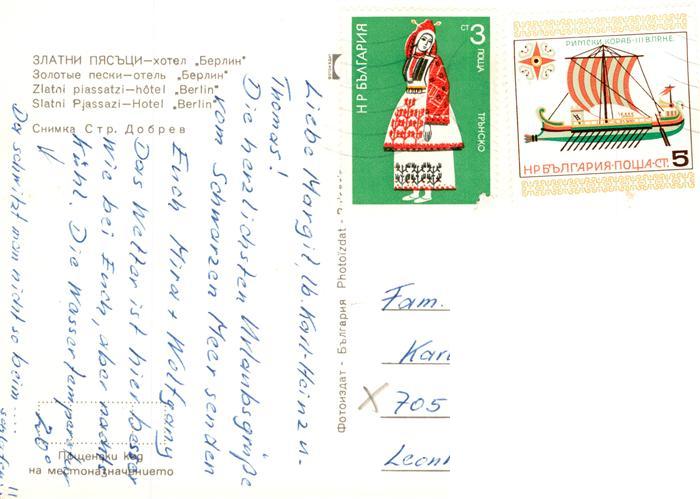 ЗЛАТНИ ПЯСЪЦИ—хотел „Берлин“
Золотые пески—отель „Берлин“
Zlatni piassatzi—hôtel „Berlin“
Slatni Pjassazi—Hotel „Berlin“
Снимка Стр. Добрев
Liebe Margit, lb. Karl-Heinz u.
Thomas!
Die herzlichsten Urlaubsgrüße
vom Schwarzen Meer senden
Euch Mira + Wolfgang
Das Wetter ist hier besser
wie bei Euch, aber nachts
kühl. Die Wassertemperatur
20°
Da schwitzt man nicht so beim ....
Пощенски код
на местоназначението
Фотоиздат - България Photoizdat -
НР БЪЛГАРИЯ
СТ 3
ПОЩА
ТРЪНСКО
РИМСКИ КОРАБ-III В.ПР.НЕ.
НР БЪЛГАРИЯ-ПОЩА-СТ. 5
Fam.
Karl
X 705
Leonh